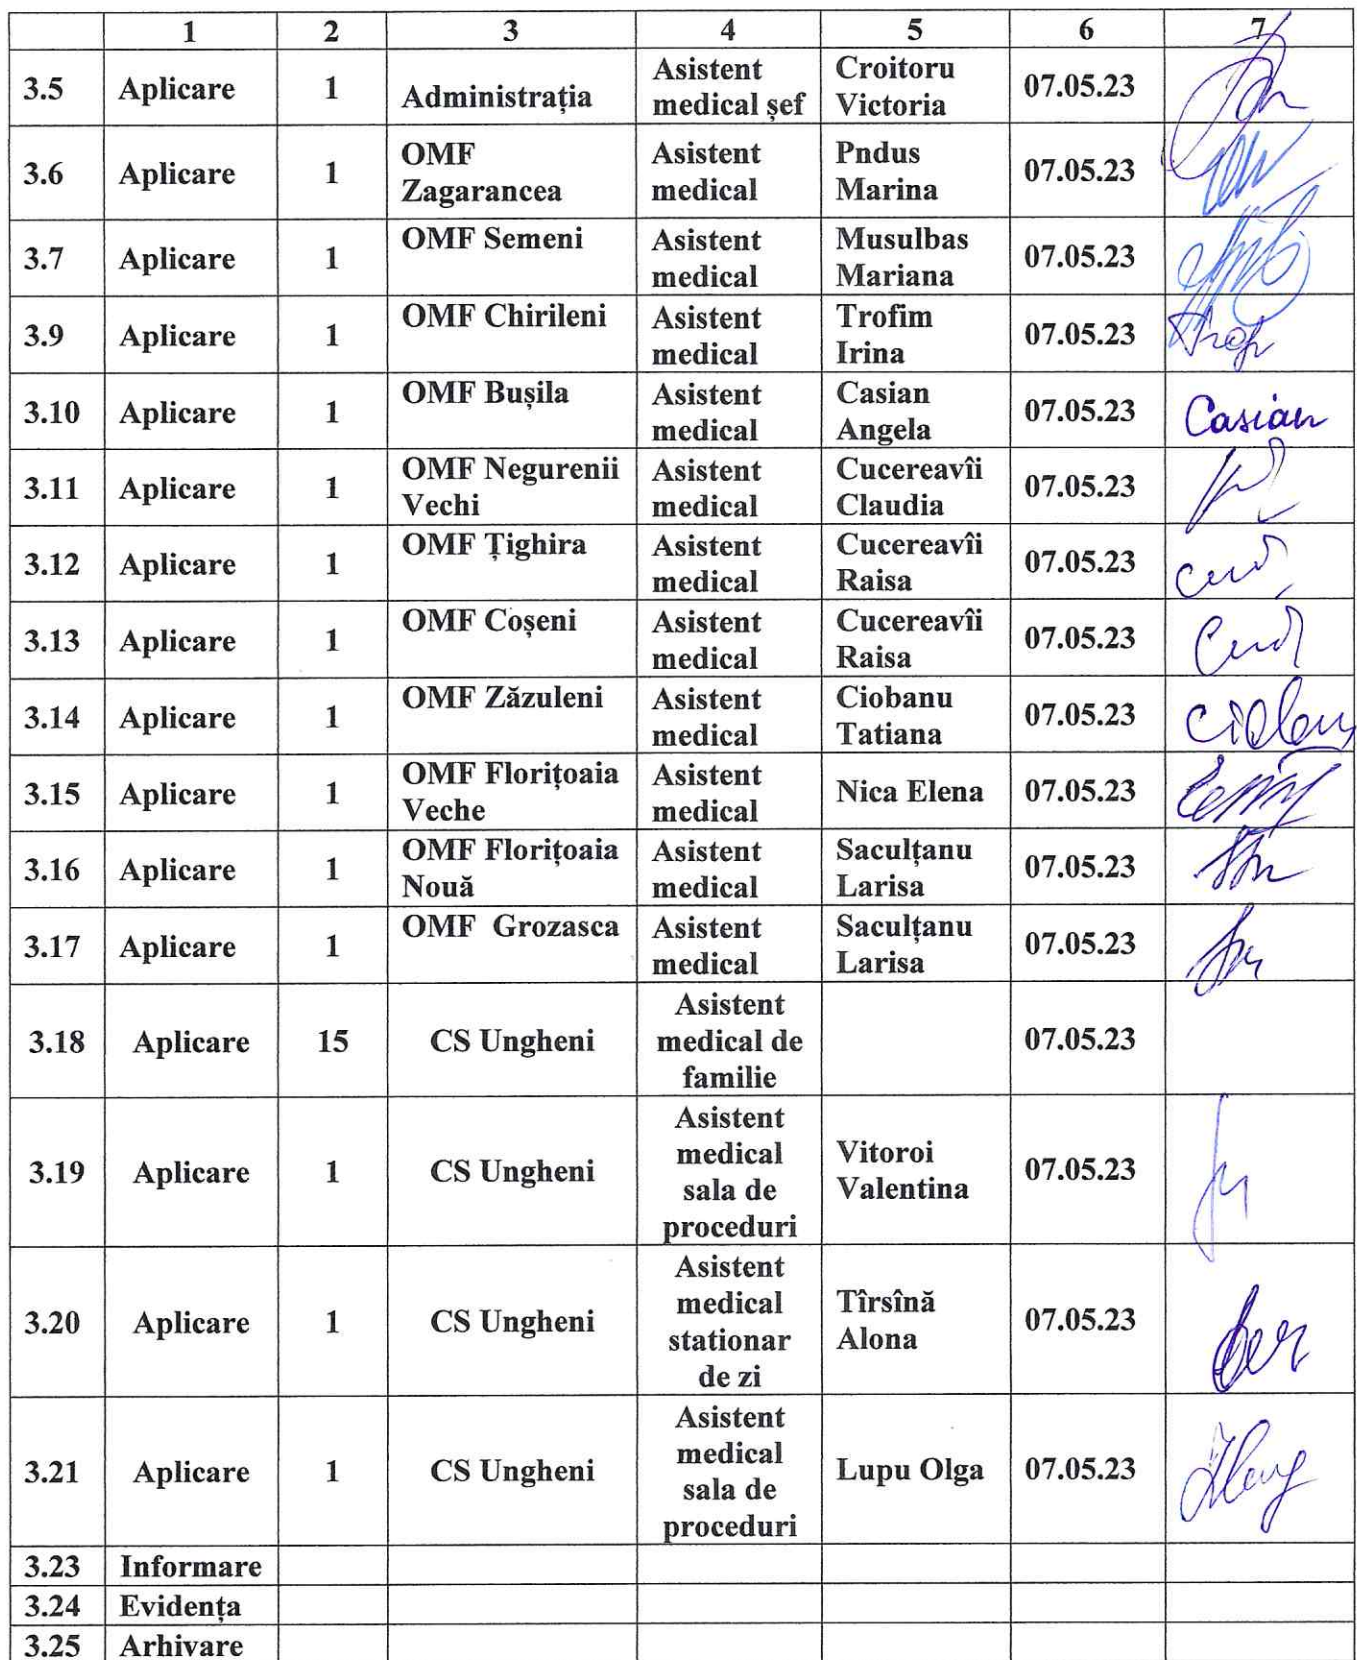 1 2 3 4 5 6 7
3.5 Aplicare 1 Administrația Asistent medical șef Croitoru Victoria 07.05.23
3.6 Aplicare 1 OMF Zagarancea Asistent medical Pndus Marina 07.05.23
3.7 Aplicare 1 OMF Semeni Asistent medical Musulbas Mariana 07.05.23
3.9 Aplicare 1 OMF Chirileni Asistent medical Trofim Irina 07.05.23
3.10 Aplicare 1 OMF Bușila Asistent medical Casian Angela 07.05.23 Casian
3.11 Aplicare 1 OMF Negurenii Vechi Asistent medical Cucereavîi Claudia 07.05.23
3.12 Aplicare 1 OMF Țighira Asistent medical Cucereavîi Raisa 07.05.23
3.13 Aplicare 1 OMF Coșeni Asistent medical Cucereavîi Raisa 07.05.23
3.14 Aplicare 1 OMF Zăzuleni Asistent medical Ciobanu Tatiana 07.05.23
3.15 Aplicare 1 OMF Florițoaia Veche Asistent medical Nica Elena 07.05.23
3.16 Aplicare 1 OMF Florițoaia Nouă Asistent medical Saculțanu Larisa 07.05.23
3.17 Aplicare 1 OMF Grozasca Asistent medical Saculțanu Larisa 07.05.23
3.18 Aplicare 15 CS Ungheni Asistent medical de familie 07.05.23
3.19 Aplicare 1 CS Ungheni Asistent medical sala de proceduri Vitoroi Valentina 07.05.23
3.20 Aplicare 1 CS Ungheni Asistent medical stationar de zi Tîrsînă Alona 07.05.23
3.21 Aplicare 1 CS Ungheni Asistent medical sala de proceduri Lupu Olga 07.05.23
3.23 Informare
3.24 Evidența
3.25 Arhivare